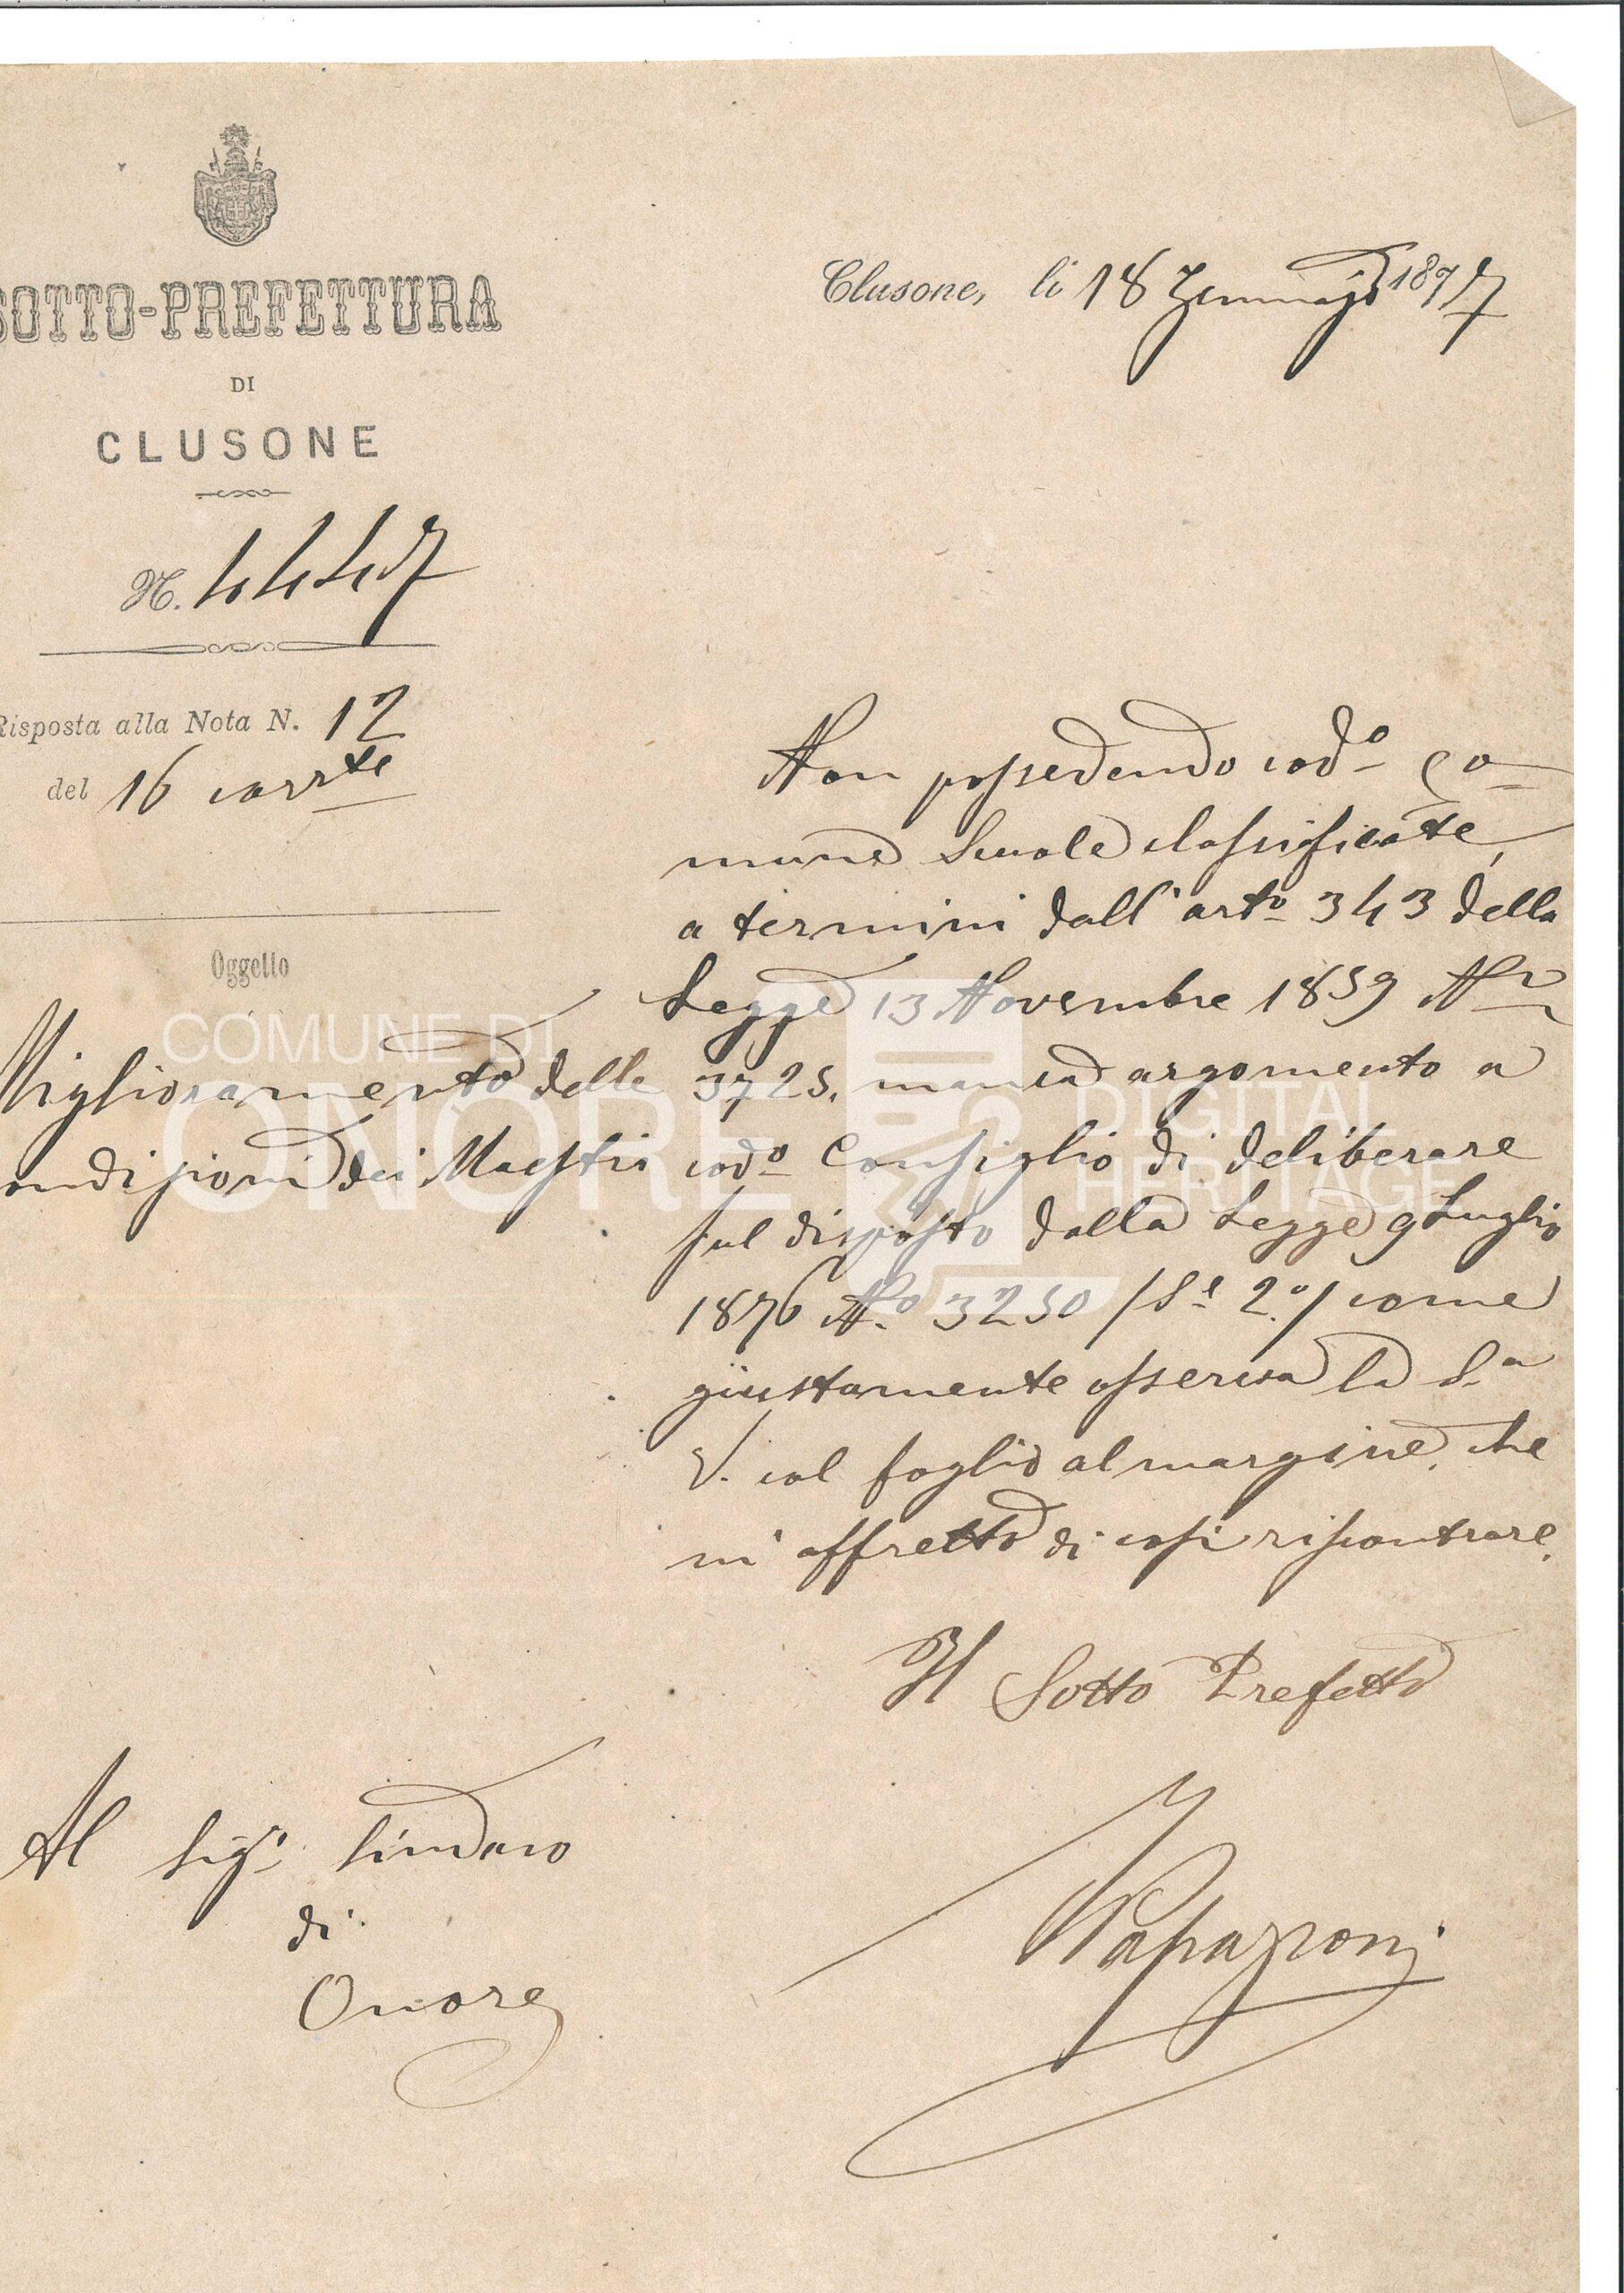 SOTTO-PREFETTURA
DI
CLUSONE
N. 4447
Risposta alla Nota N. 12
del 16 corrte
Oggetto
Miglioramento delle
ondizioni dei Maestri
Al Sigr Sindaco
di
Onore
Clusone, li 18 Gennajo 1877
Non possedendo codo Co-
mune Scuole classificate,
a termini dall'arto 343 della
Legge 13 Novembre 1859 Nr
3725, manca argomento a
codo Consiglio di deliberare
sul disposto dalla Legge 9 Luglio
1876 No 3250 /Se 2a/ come
giustamente osserva la Sa
V. col foglio al margine, che
m'affretto di così riscontrare.
Il Sotto Prefetto
COMUNE DI
ONORE
DIGITAL
HERITAGE